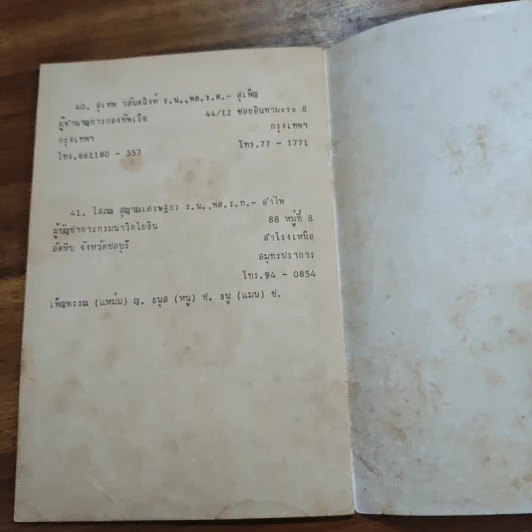 40. สุเทพ วสันตสิงห์ ร.น.,พล.ร.ต.- สุเพ็ญ
ผู้ชำนาญการกองทัพเรือ 44/12 ซอยอินทามะระ 8
กรุงเทพฯ กรุงเทพฯ
โทร.661180 - 357 โทร.77 - 1771
41. โสภณ สุญาณเศรษฐกร ร.น.,พล.ร.ท.- อำไพ
ผู้บัญชาการกรมนาวิกโยธิน 88 หมู่ที่ 8
สัตหีบ จังหวัดชลบุรี สำโรงเหนือ
สมุทรปราการ
โทร.94 - 0854
เพ็ญพรรณ (แหม่ม) ญ. ธนุส (หนู) ช. ธนู (แมน) ช.